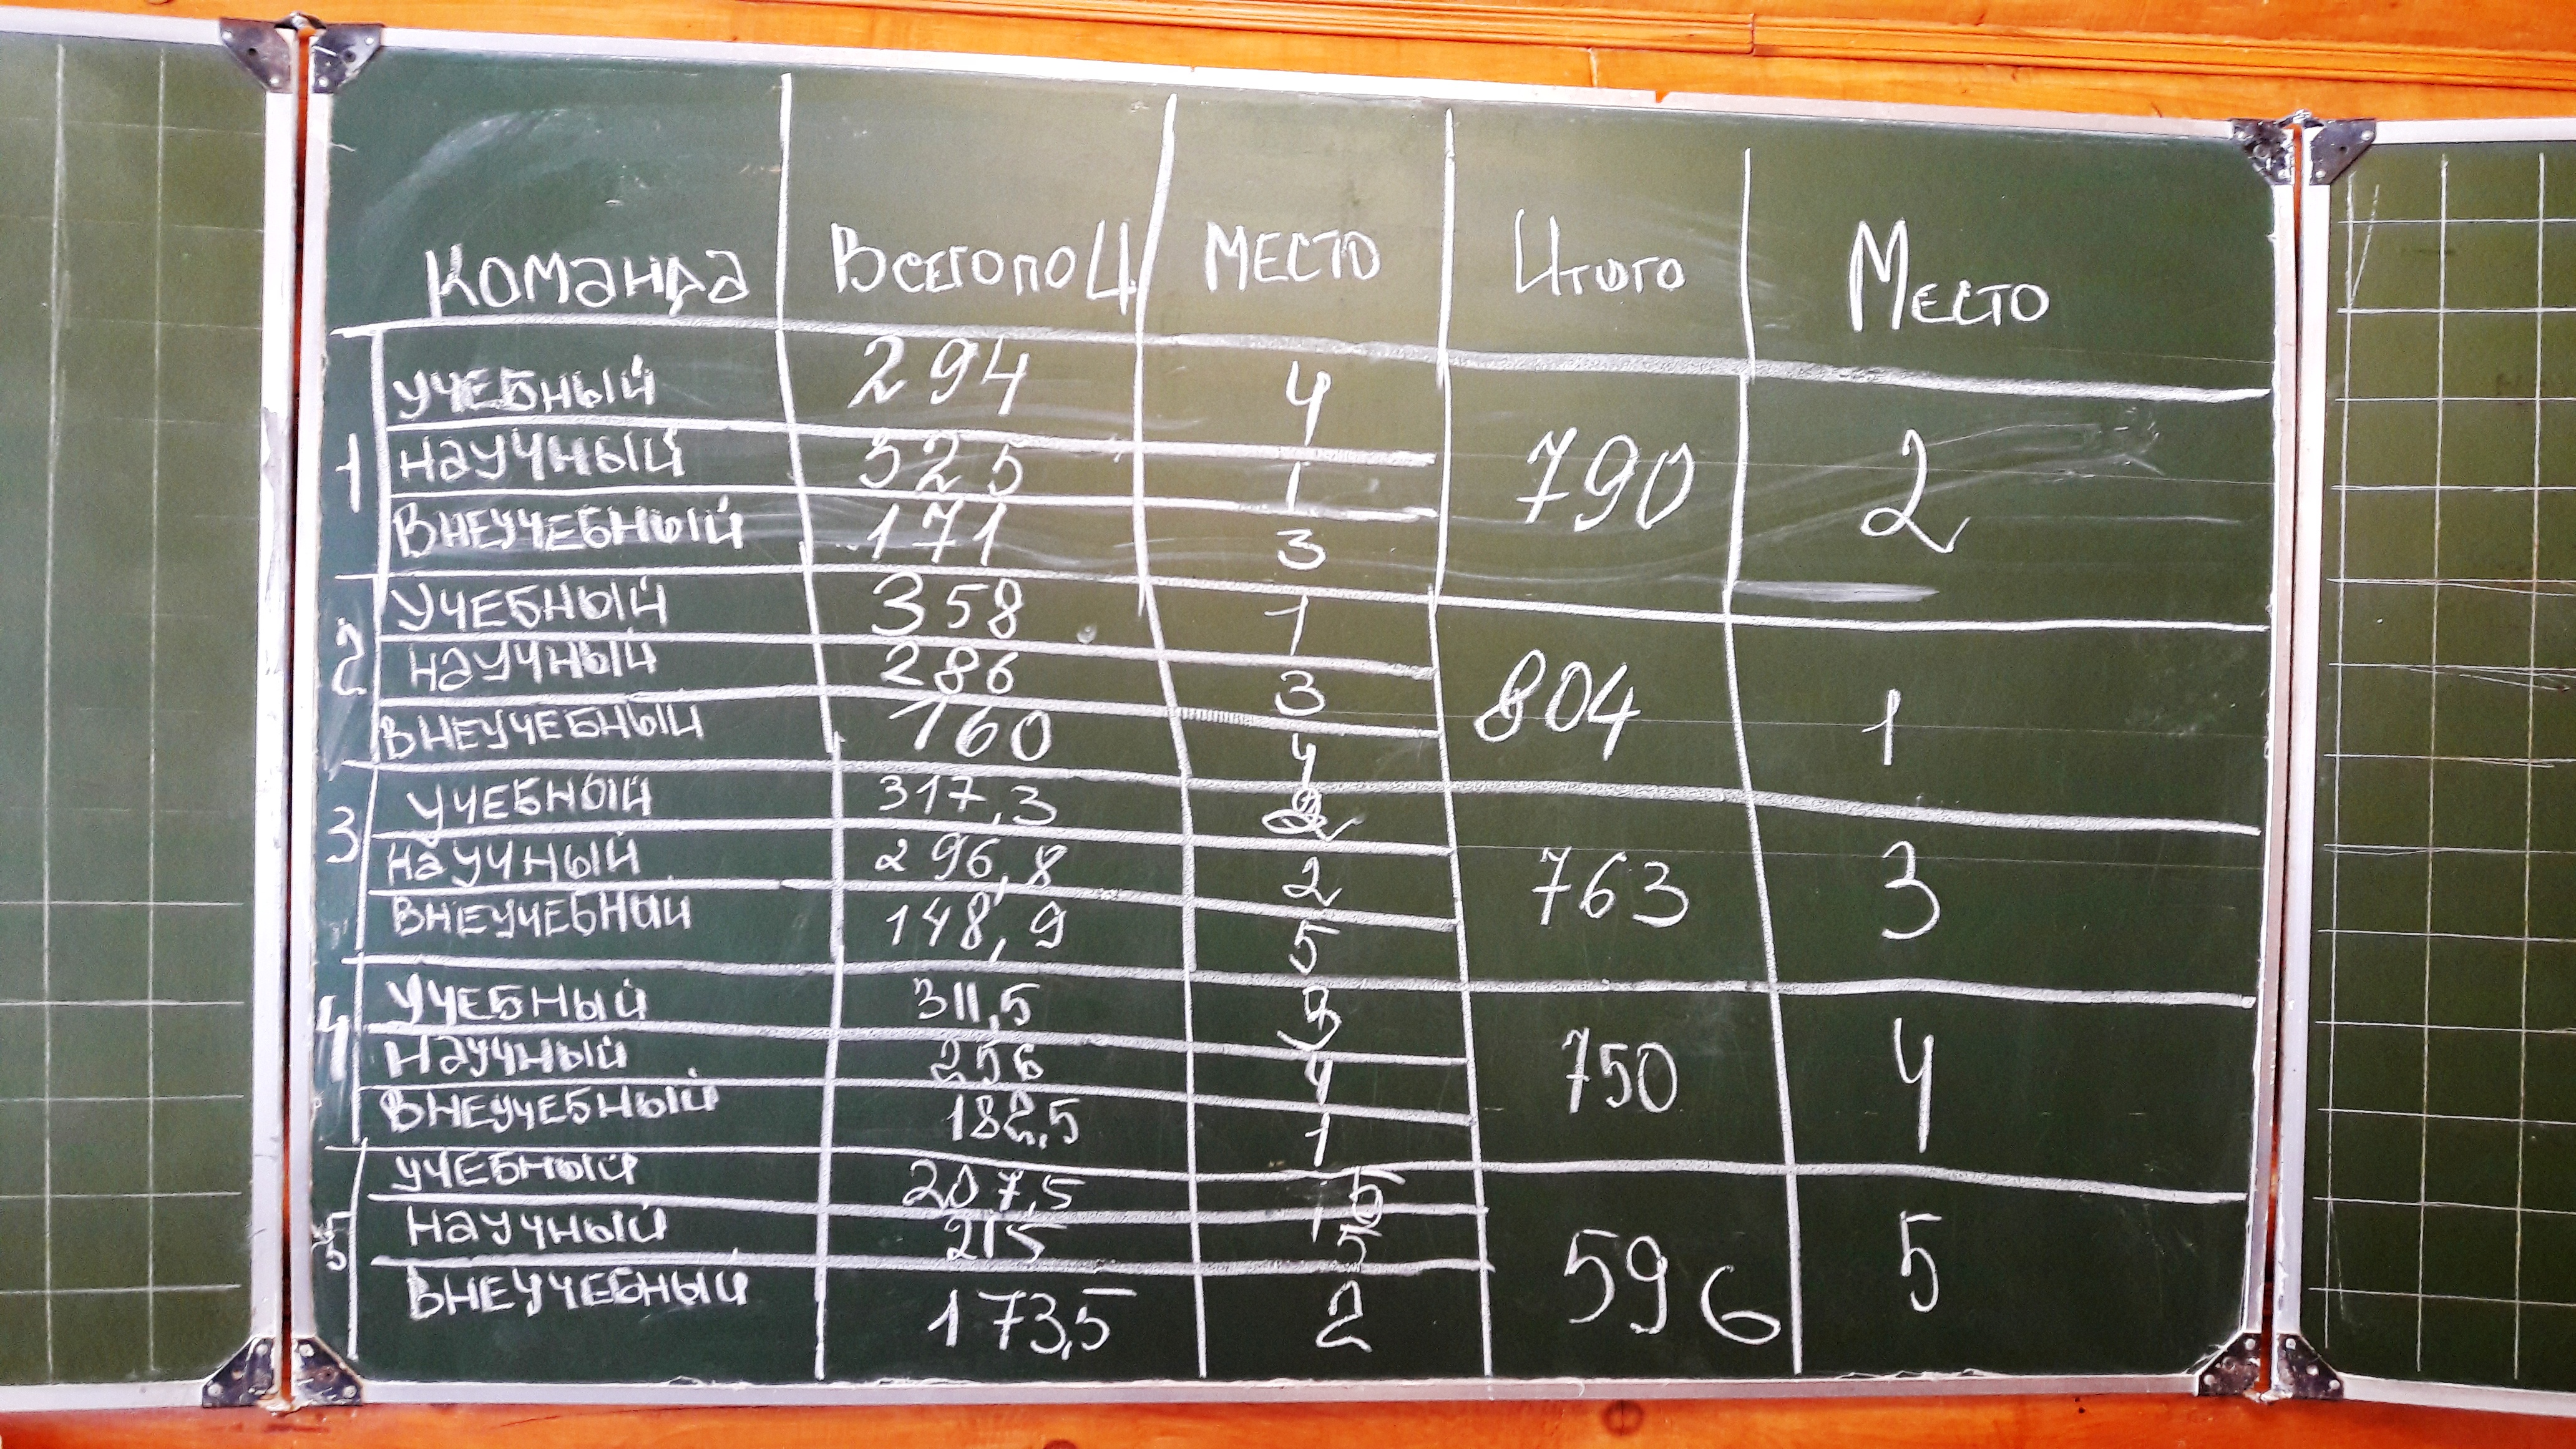 Команда Всего по 4 Место Итого Место
1 Учебный 294 4 790 2
Научный 325 1
Внеучебный 171 3
2 Учебный 358 1 804 1
Научный 286 3
Внеучебный 160 4
3 Учебный 317,3 2 763 3
Научный 296,8 2
Внеучебный 148,9 5
4 Учебный 311,5 3 750 4
Научный 256 4
Внеучебный 182,5 1
5 Учебный 207,5 5 596 5
Научный 215 5
Внеучебный 173,5 2